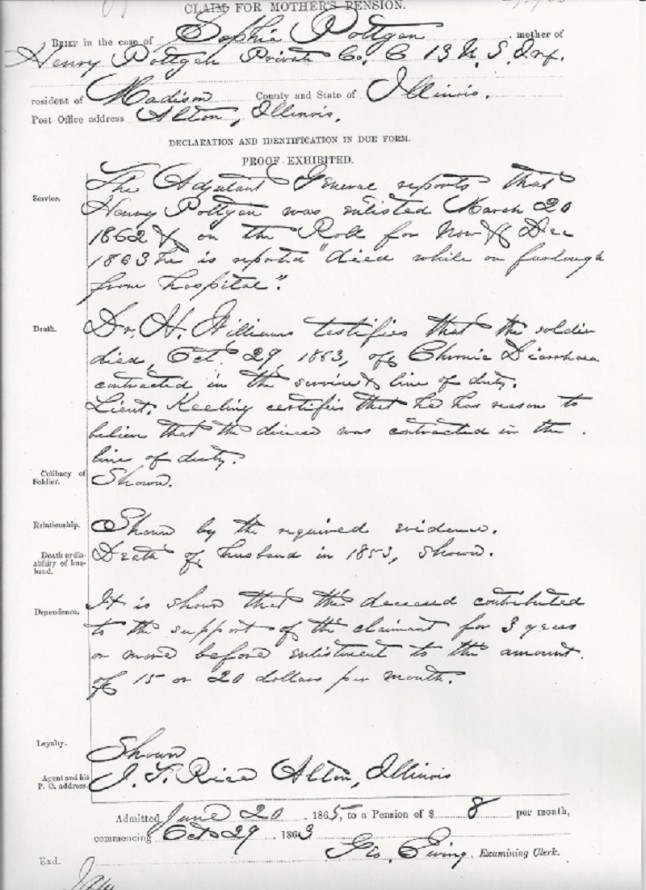 CLAIM FOR MOTHER'S PENSION.
BRIEF in the case of Sophie Pottgen mother of
Henry Pottgen Private Co. C 13 U.S. Inf.
resident of Madison County and State of Illinois.
Post Office address Alton, Illinois.
DECLARATION AND IDENTIFICATION IN DUE FORM.
PROOF EXHIBITED.
Service. The Adjutant General reports that
Henry Pottgen was enlisted March 20
1862 & on the Roll for Nov & Dec
1863 he is reported "died while on furlough
from hospital".
Death. Dr. H. Williams testifies that the soldier
died, Oct. 29, 1863, of Chronic Diarrhoea
contracted in the service & line of duty.
Lieut. Keeling certifies that he has reason to
believe that the disease was contracted in the
line of duty.
Celibacy of Soldier. Shown.
Relationship. Shown by the required evidence.
Death or disability of husband. Death of husband in 1853, shown.
Dependence. It is shown that the deceased contributed
to the support of the claimant for 3 years
or more before enlistment to the amount
of 15 or 20 dollars per month.
Loyalty. Shown
Agent and his P. O. address. J. T. Rice Alton, Illinois
Admitted June 20 1865, to a Pension of $ 8 per month,
commencing Oct 29 1863
Geo. Ewing, Examining Clerk.